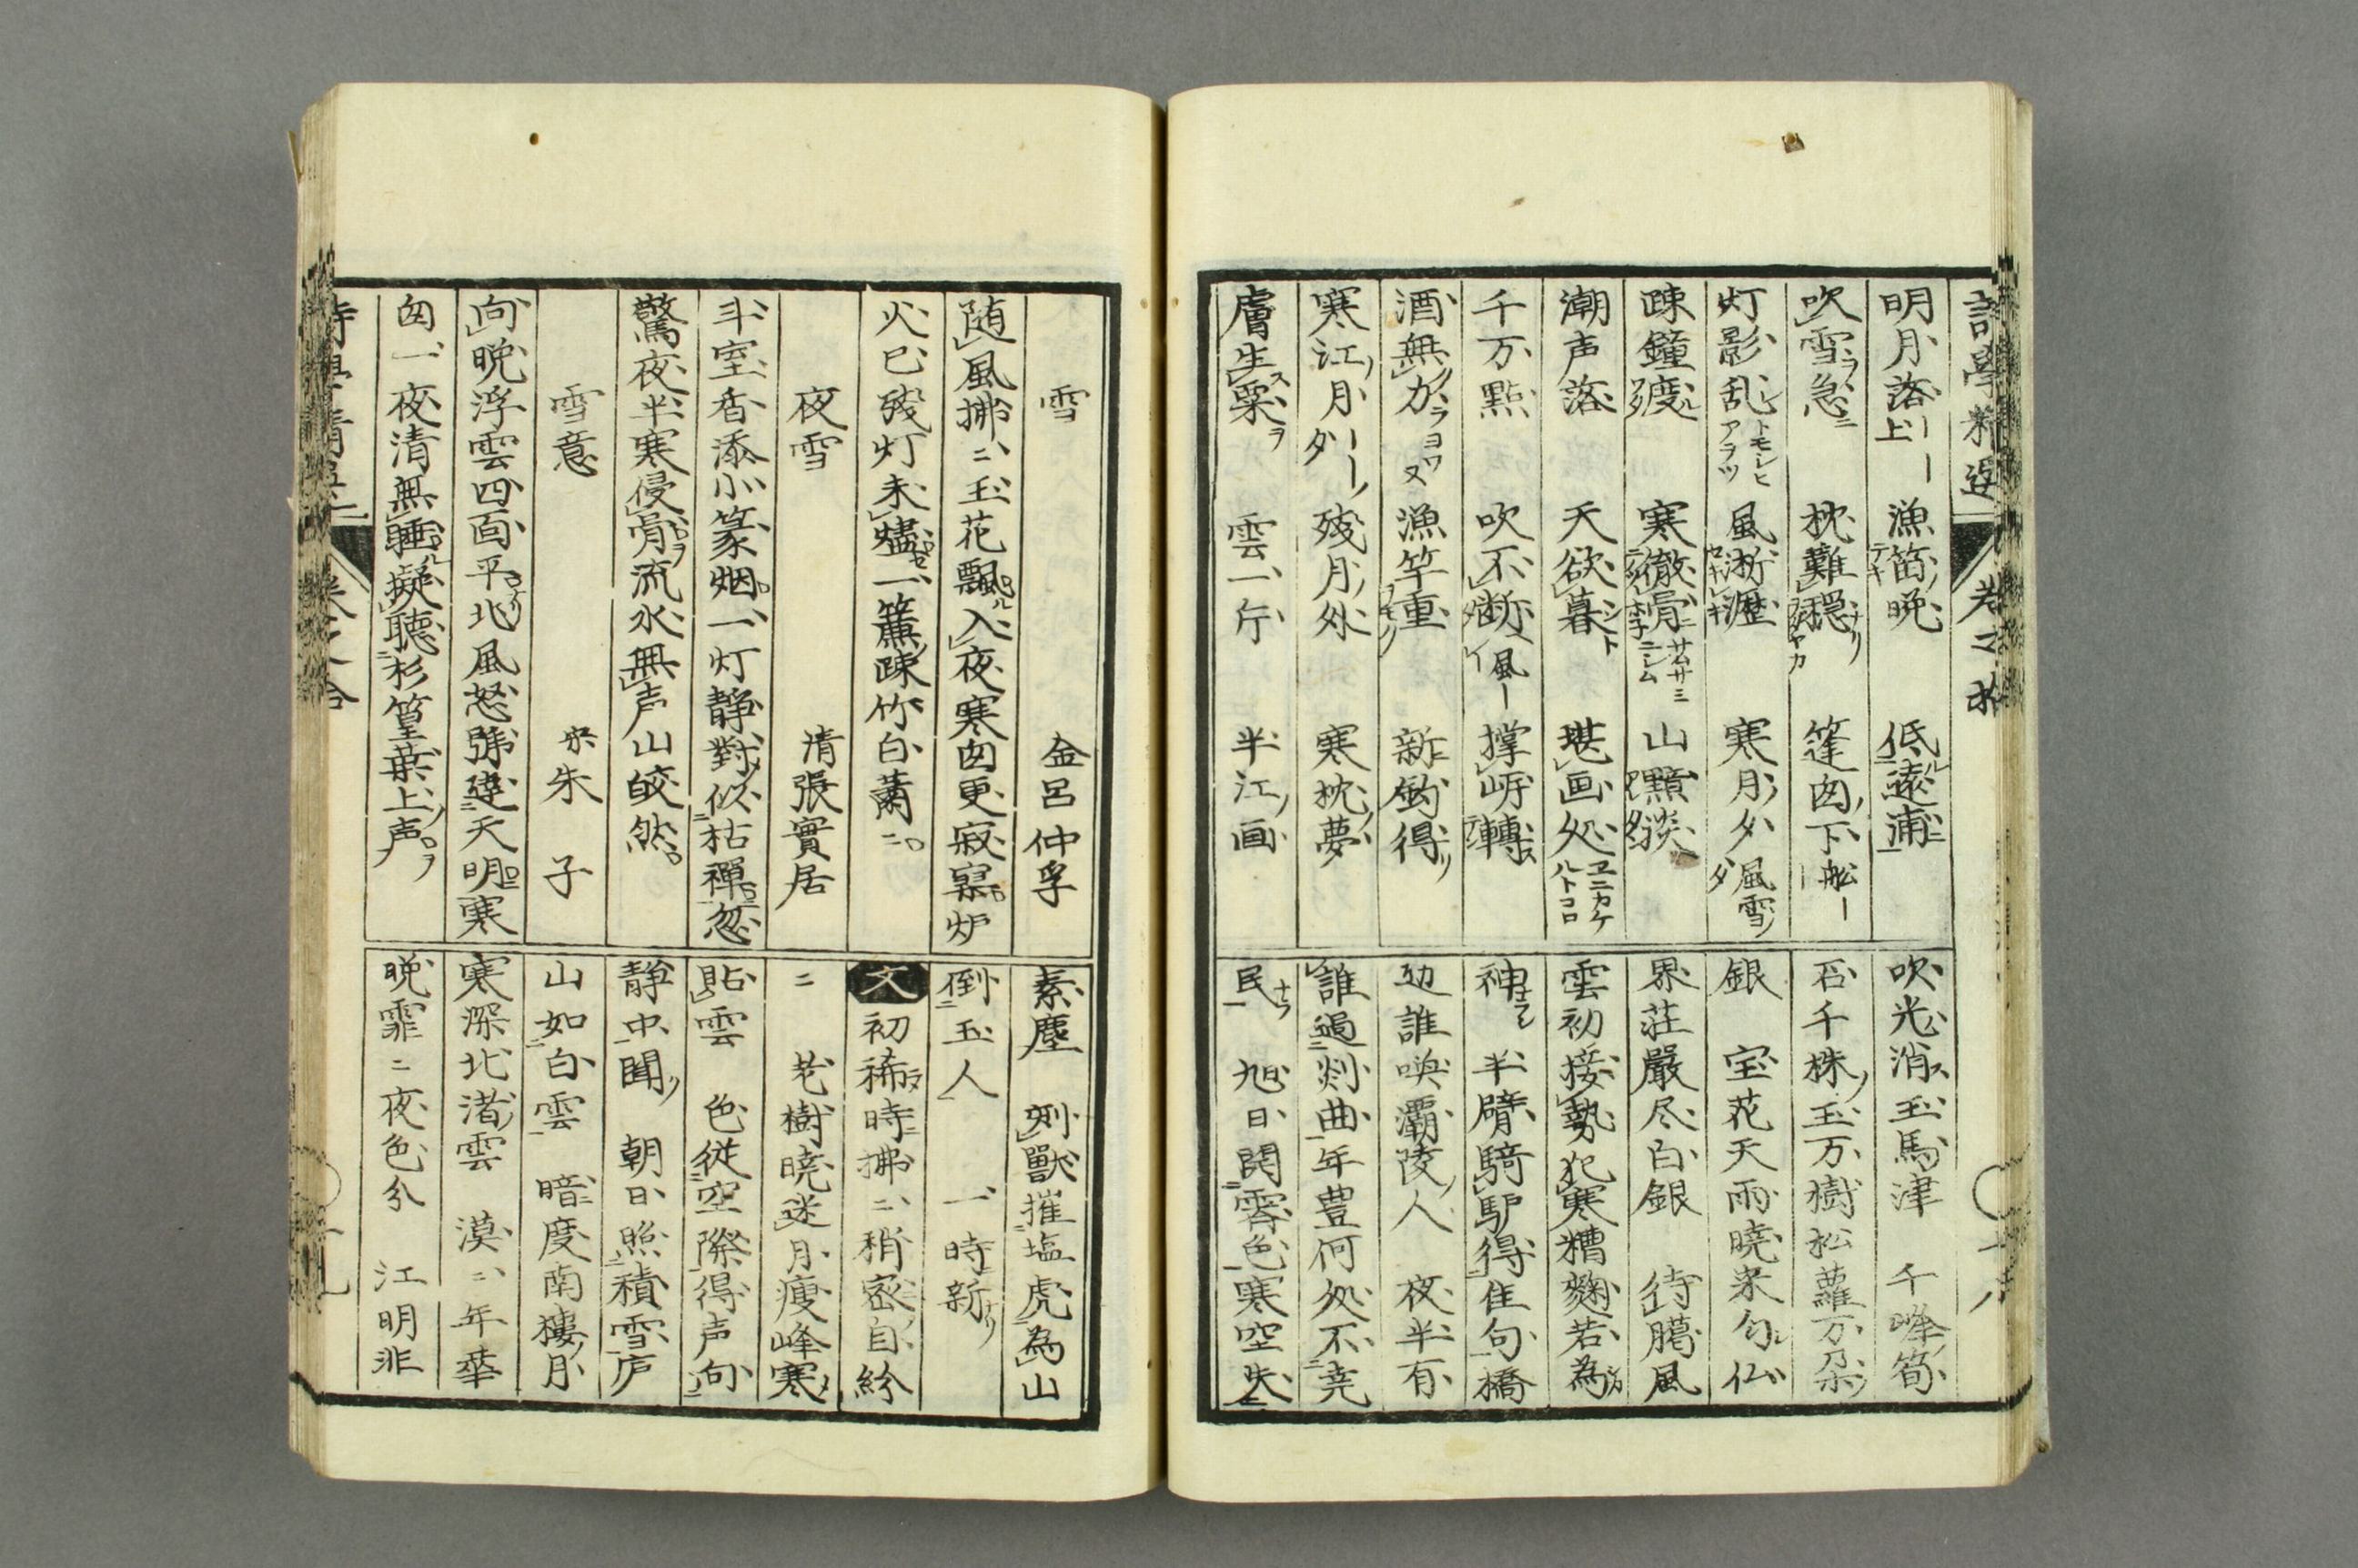 明月落 漁笛晩 低遠浦
吹雪急 枕難穏 篷囱下
灯影乱 風淅瀝 寒月夕
疎鐘度 寒徹骨 山點淡
潮声落 天欲暮 堪画処
千万點 吹不断 撑岈轉
酒無力 漁竿重 新釣得
寒江月 残月外 寒枕夢
膚生粟 雲一片 半江画
吹光消玉馬津 千峰筍
石千株玉万樹松蘿万朶
銀 宝花天雨暁来匀仏
界荘嚴尽白銀 待臈風
雲初接勢犯寒糟麹若為
神 半臂騎驴得隹句橋
边誰喚灞陵人 夜半有
誰過剡曲年豊何処不堯
民 旭日開霽色寒空失
雪 金呂仲孚
随風拂〻玉花飄入夜寒囱更寂寞炉
火已残灯未燼一簾疎竹白蕭〻
夜雪 清張實居
斗室香添小篆烟一灯静對似枯禪忽
驚夜半寒侵骨流水無声山皎然
雪意 宋朱子
向晩浮雲四面平北風怒號達天明寒
囱一夜清無睡擬聴杉篁葉上声
素塵 刿獸摧塩虎為山
倒玉人 一時新
文 初稀時拂〻稍密自紛
〻 老樹暁迷月痩峰寒
貼雲 色従空際得声向
静中聞 朝日照積雪庐
山如白雲 暗度南樓月
寒深北渚雲 漠〻年華
晩霏〻夜色分 江明非